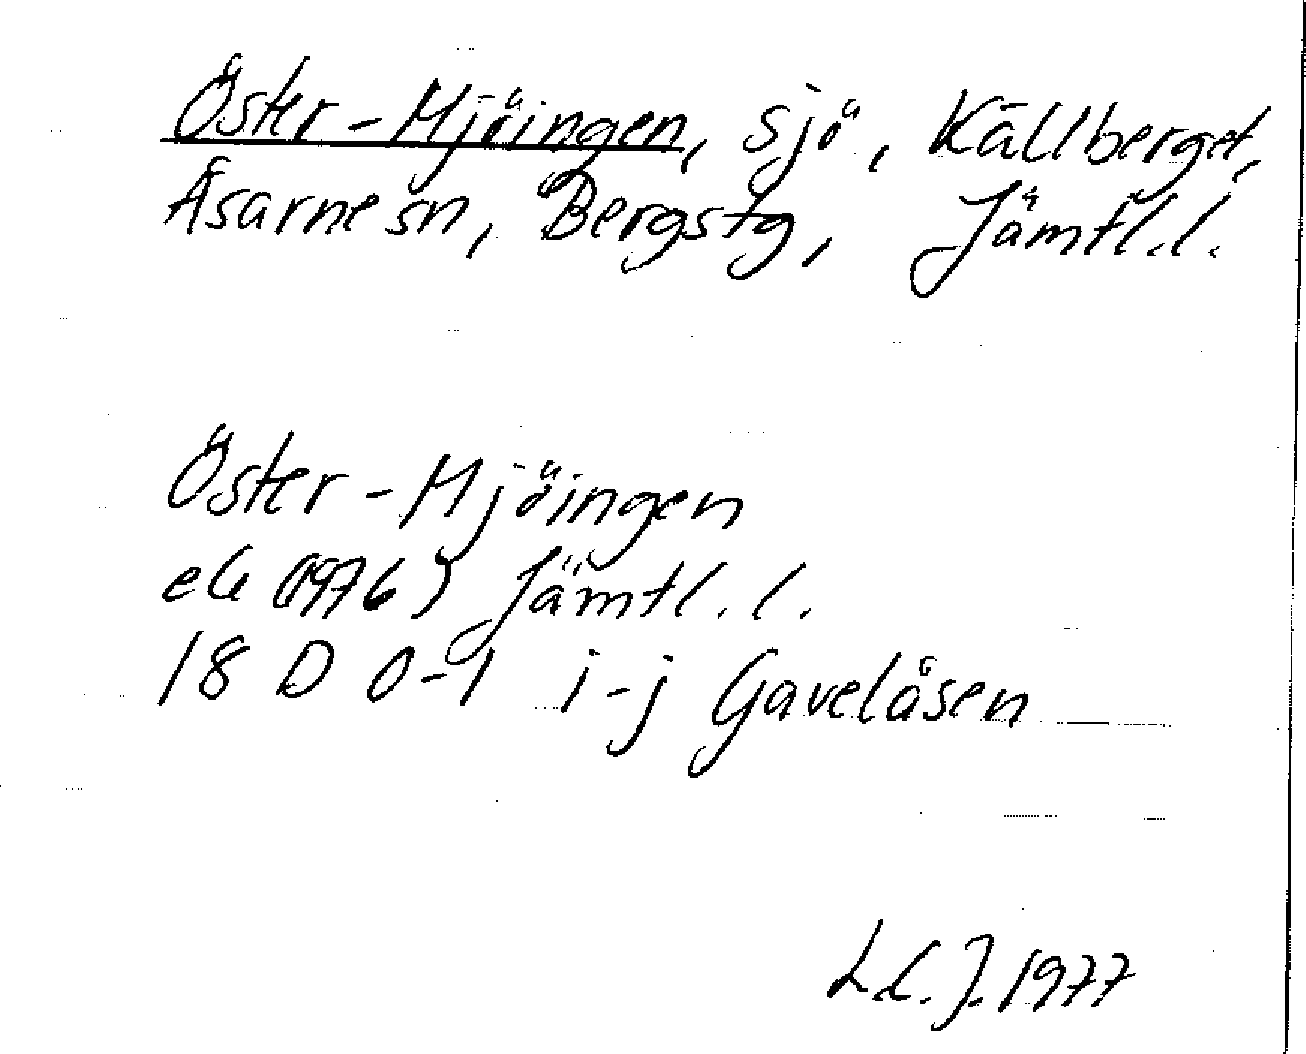 Öster-Hjöingen, sjö, Källberget,
Åsarne sn, Bergs tg, Jämtl. l.
Öster-Hjöingen
ek (1976) Jämtl. l.
18 D 0-1 i-j Gavelåsen
L.L.J. 1977